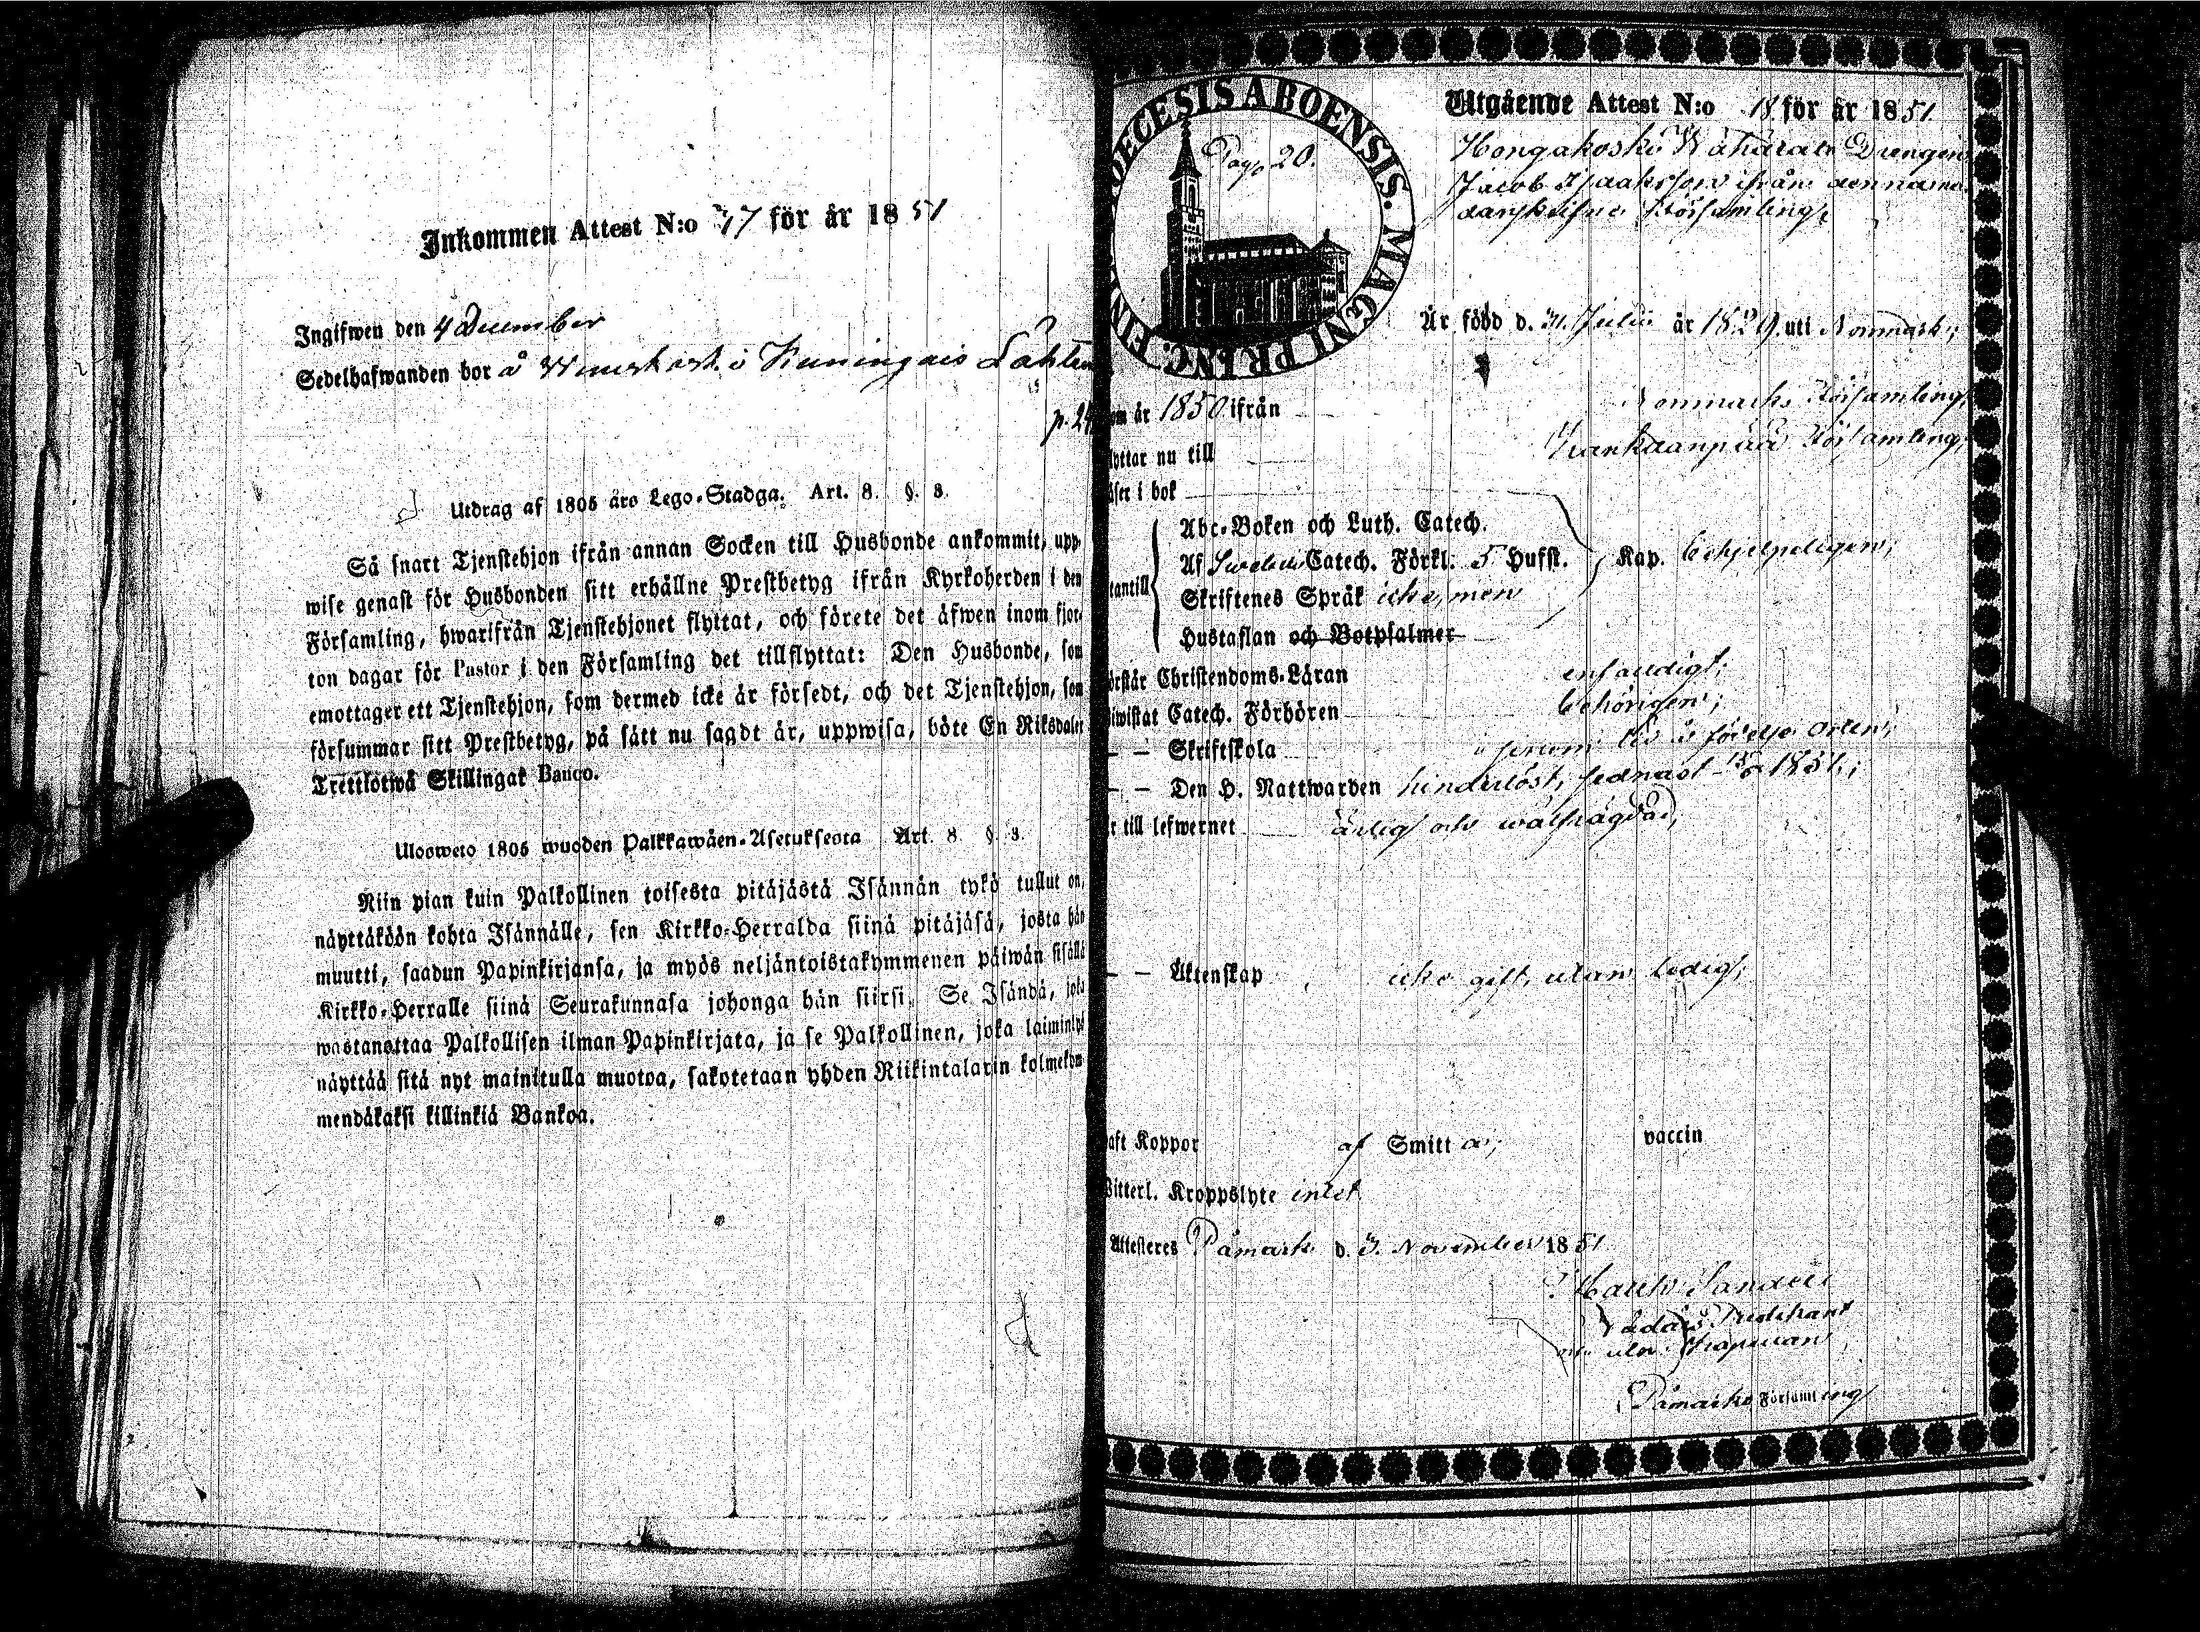 Inkommen Attest N:o 47 för år 1851
Ingifwen den 4 December
Sedelhafwanden bor å
p. 24
Utdrag af 1805 års Lego-Stadga. Art. 8. §. 3.
Så snart Tjenstehjon ifrån annan Socken till Husbonde ankommit, upp-
wise genast för Husbonden sitt erhållne Prestbetyg ifrån Kyrkoherden i den
Församling, hwarifrån Tjenstehjonet flyttat, och förete det äfwen inom fjor-
ton dagar för Pastor i den Församling det tillflyttat: Den Husbonde, som
emottager ett Tjenstehjon, som dermed icke är försedt, och det Tjenstehjon, som
försummar sitt Prestbetyg, på sätt nu sagdt är, uppwisa, böte En Riksdaler
Trettiotwå Skillingar Banco.
Ulosweto 1805 wuoden Palkkawäen-Asetuksesta Art. 8 §. 3.
Niin pian kuin Palkollinen toisesta pitäjästä Isännän tykö tullut on,
näyttäköön kohta Isännälle, sen Kirkko-Herralda siinä pitäjäsä, josta hän
muutti, saadun Papinkirjansa, ja myös neljäntoistakymmenen päiwän sisällä
Kirkko-Herralle siinä Seurakunnasa johonga hän siirsi. Se Isändä, joka
wastanottaa Palkollisen ilman Papinkirjata, ja se Palkollinen, joka laiminlyö
näyttää sitä nyt mainitulla muotoa, sakotetaan yhden Riikintalarin kolmekym-
mendäkaksi killinkiä Bankoa.
DECESIS ABOENSIS. MAGNI PRINC. FIN
Pag. 20.
Utgående Attest N:o 18 för år 1851
Hongakoski Drengen
Jacob Isaaksson ifrån denna
Församling,
Är född d. 31 Julii år 1829 uti Norrmark;
om år 1850 ifrån Norrmarks Församling,
lyttar nu till Kankaanpää Församling;
äser i bok
Abc-Boken och Luth. Catech.
Af Svebelii Catech. Förkl. 5 Hufst. Kap. behjelpeligen;
tantill Skriftenes Språk icke, men
Hustaflan och Botpsalmer
örstår Christendoms-Läran enfaldigt;
iwistat Catech. Förhören behörigen;
— — Skriftskola orten;
— — Den H. Nattwarden hinderlöst, sednast 1851;
r till lefwernet ärlig och wälfrägdad,
— — Äktenskap icke gift, utan ledig;
aft Koppor af Smitta; vaccin
itterl. Kroppslyte intet
Attesteres Påmark d. 3. November 1851
Predikant
Kapellan
Påmarks Församling